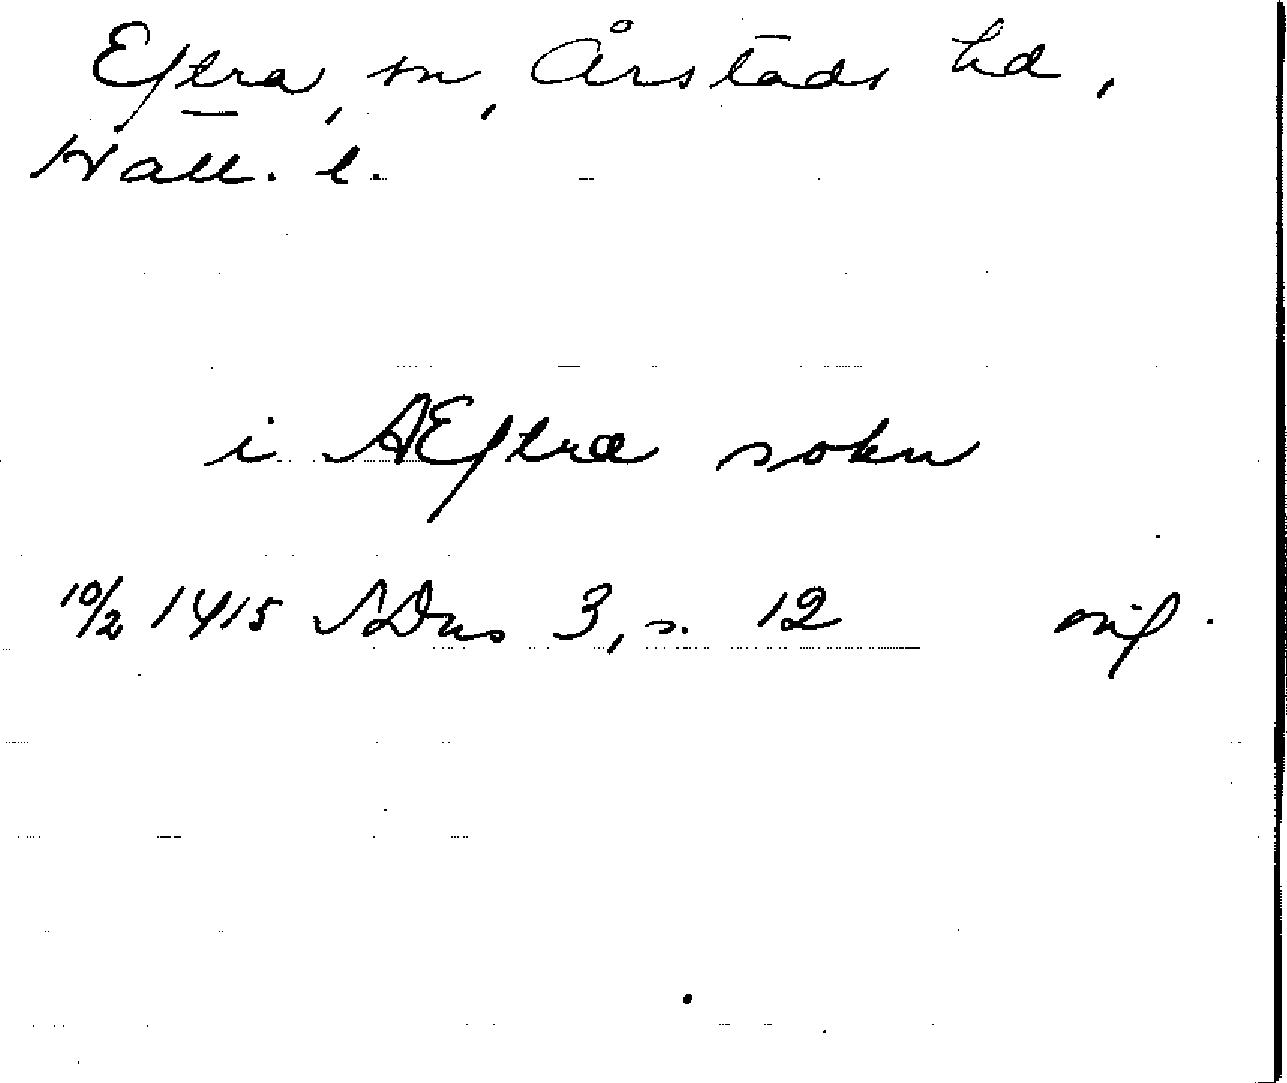 Eftra, sn, Årstads hd,
Hall. l.
i AEftræ sokn
10/2 1415 SDns 3, s. 12 mf.